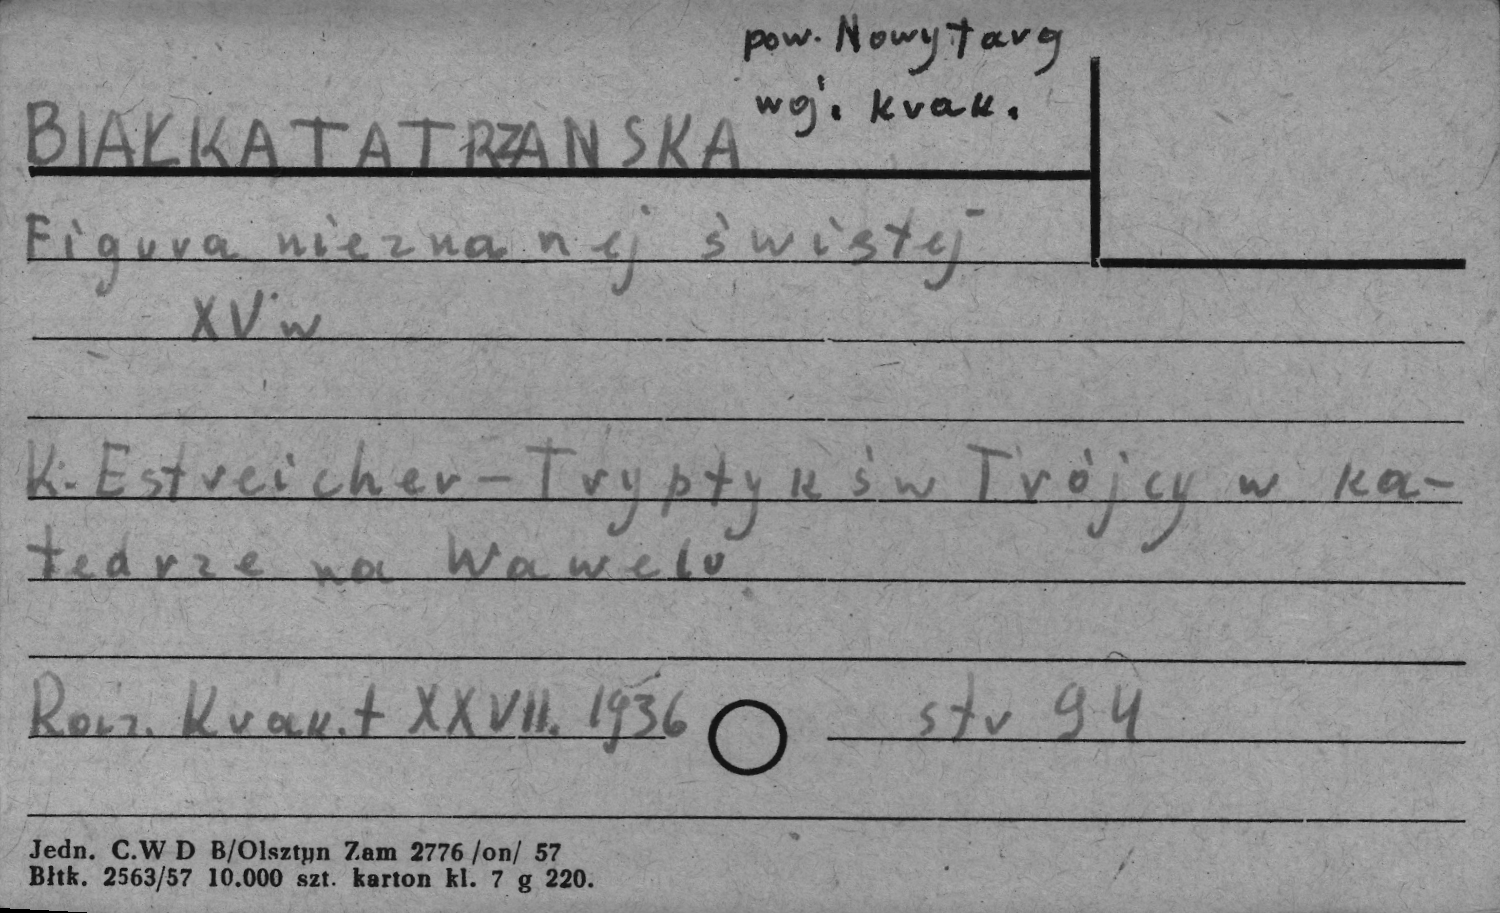 pow. Nowy targ
woj. krak.
BIAŁKA TATRZANSKA
Figura nieznanej świstej
XV w
K. Estreicher - Tryptyk św Trójcy w ka-
tedrze na Wawelu
Rocz. Krak. t XXVII. 1936 str 94
Jedn. C.W D B/Olsztyn Zam 2776 /on/ 57
Błtk. 2563/57 10.000 szt. karton kl. 7 g 220.